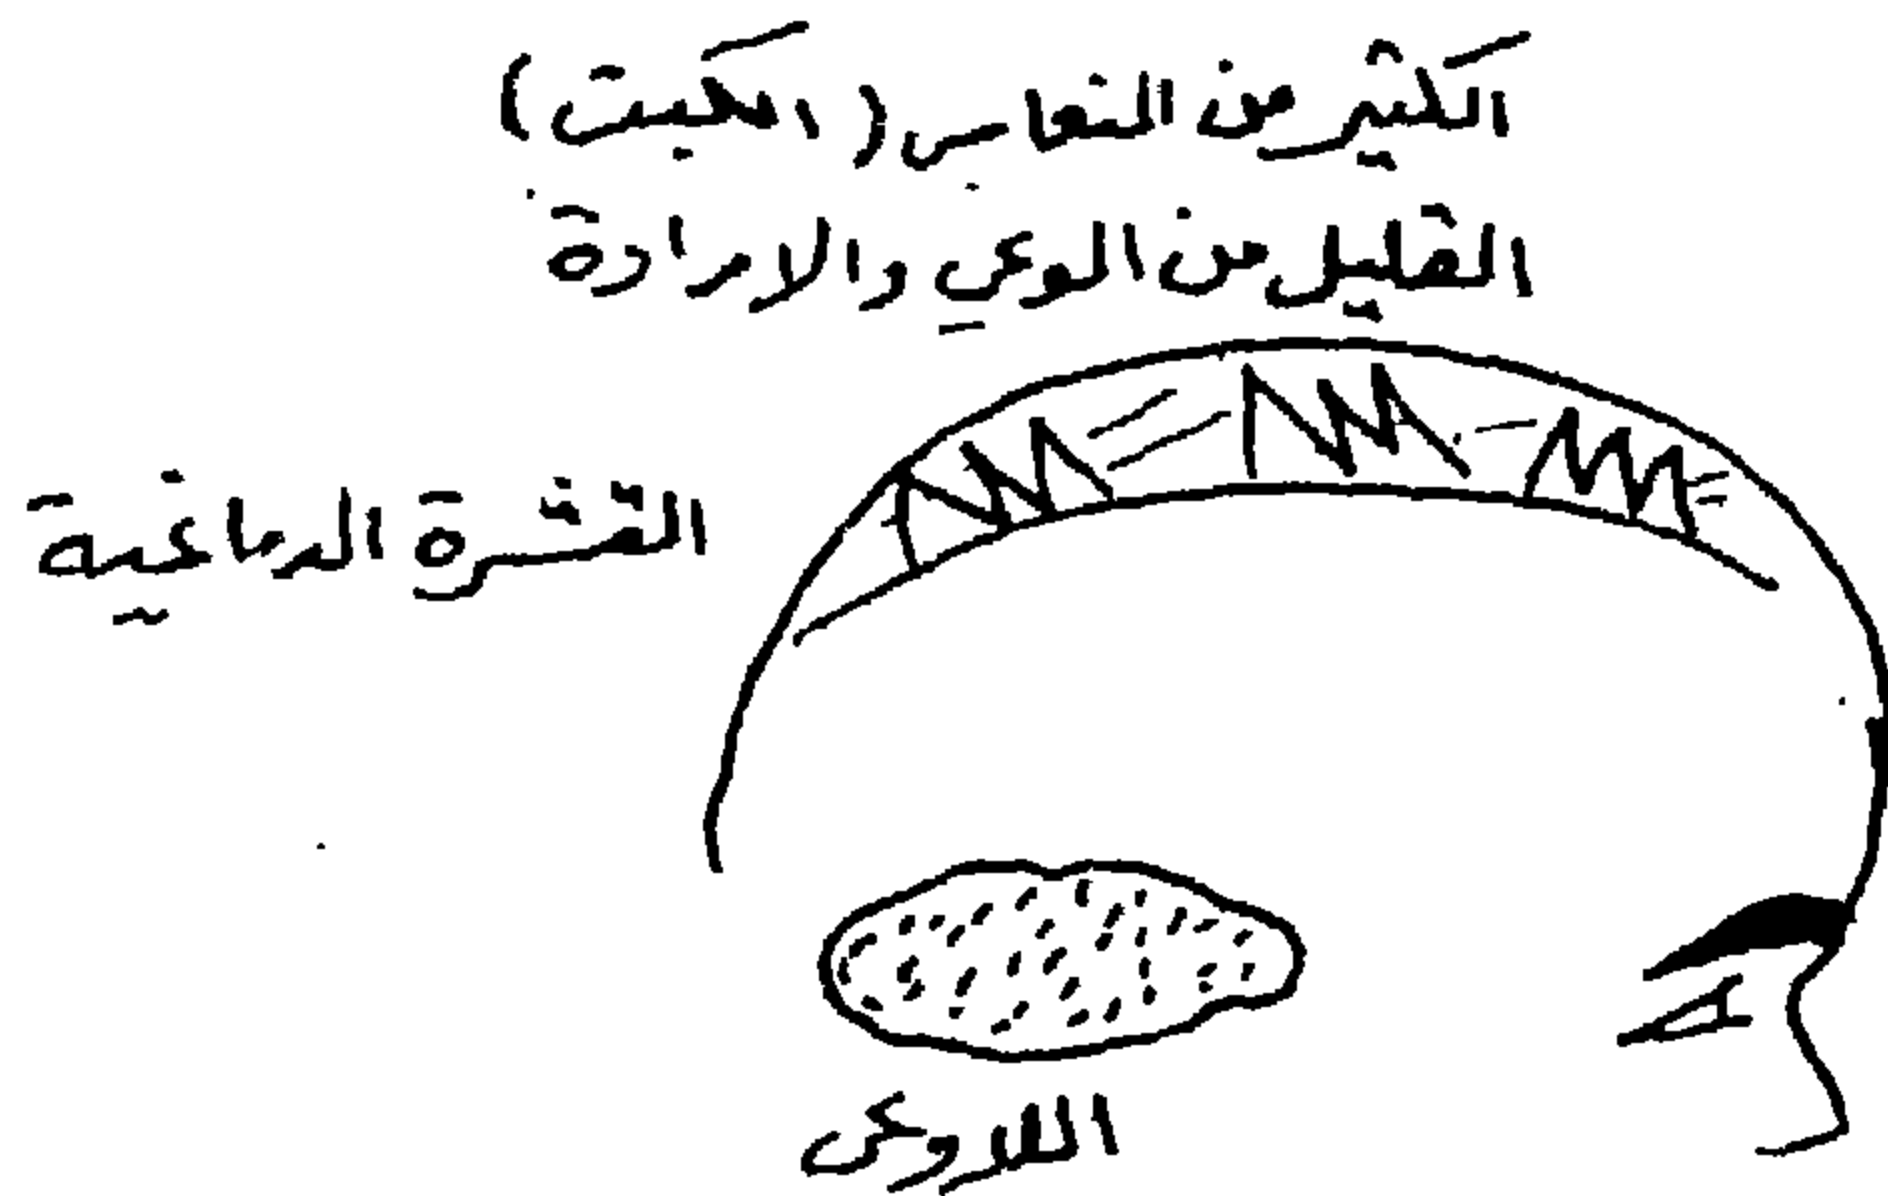 الكثير من النعاس (الكبت)
القليل من الوعي والارادة
القشرة الدماغية
اللاوعى